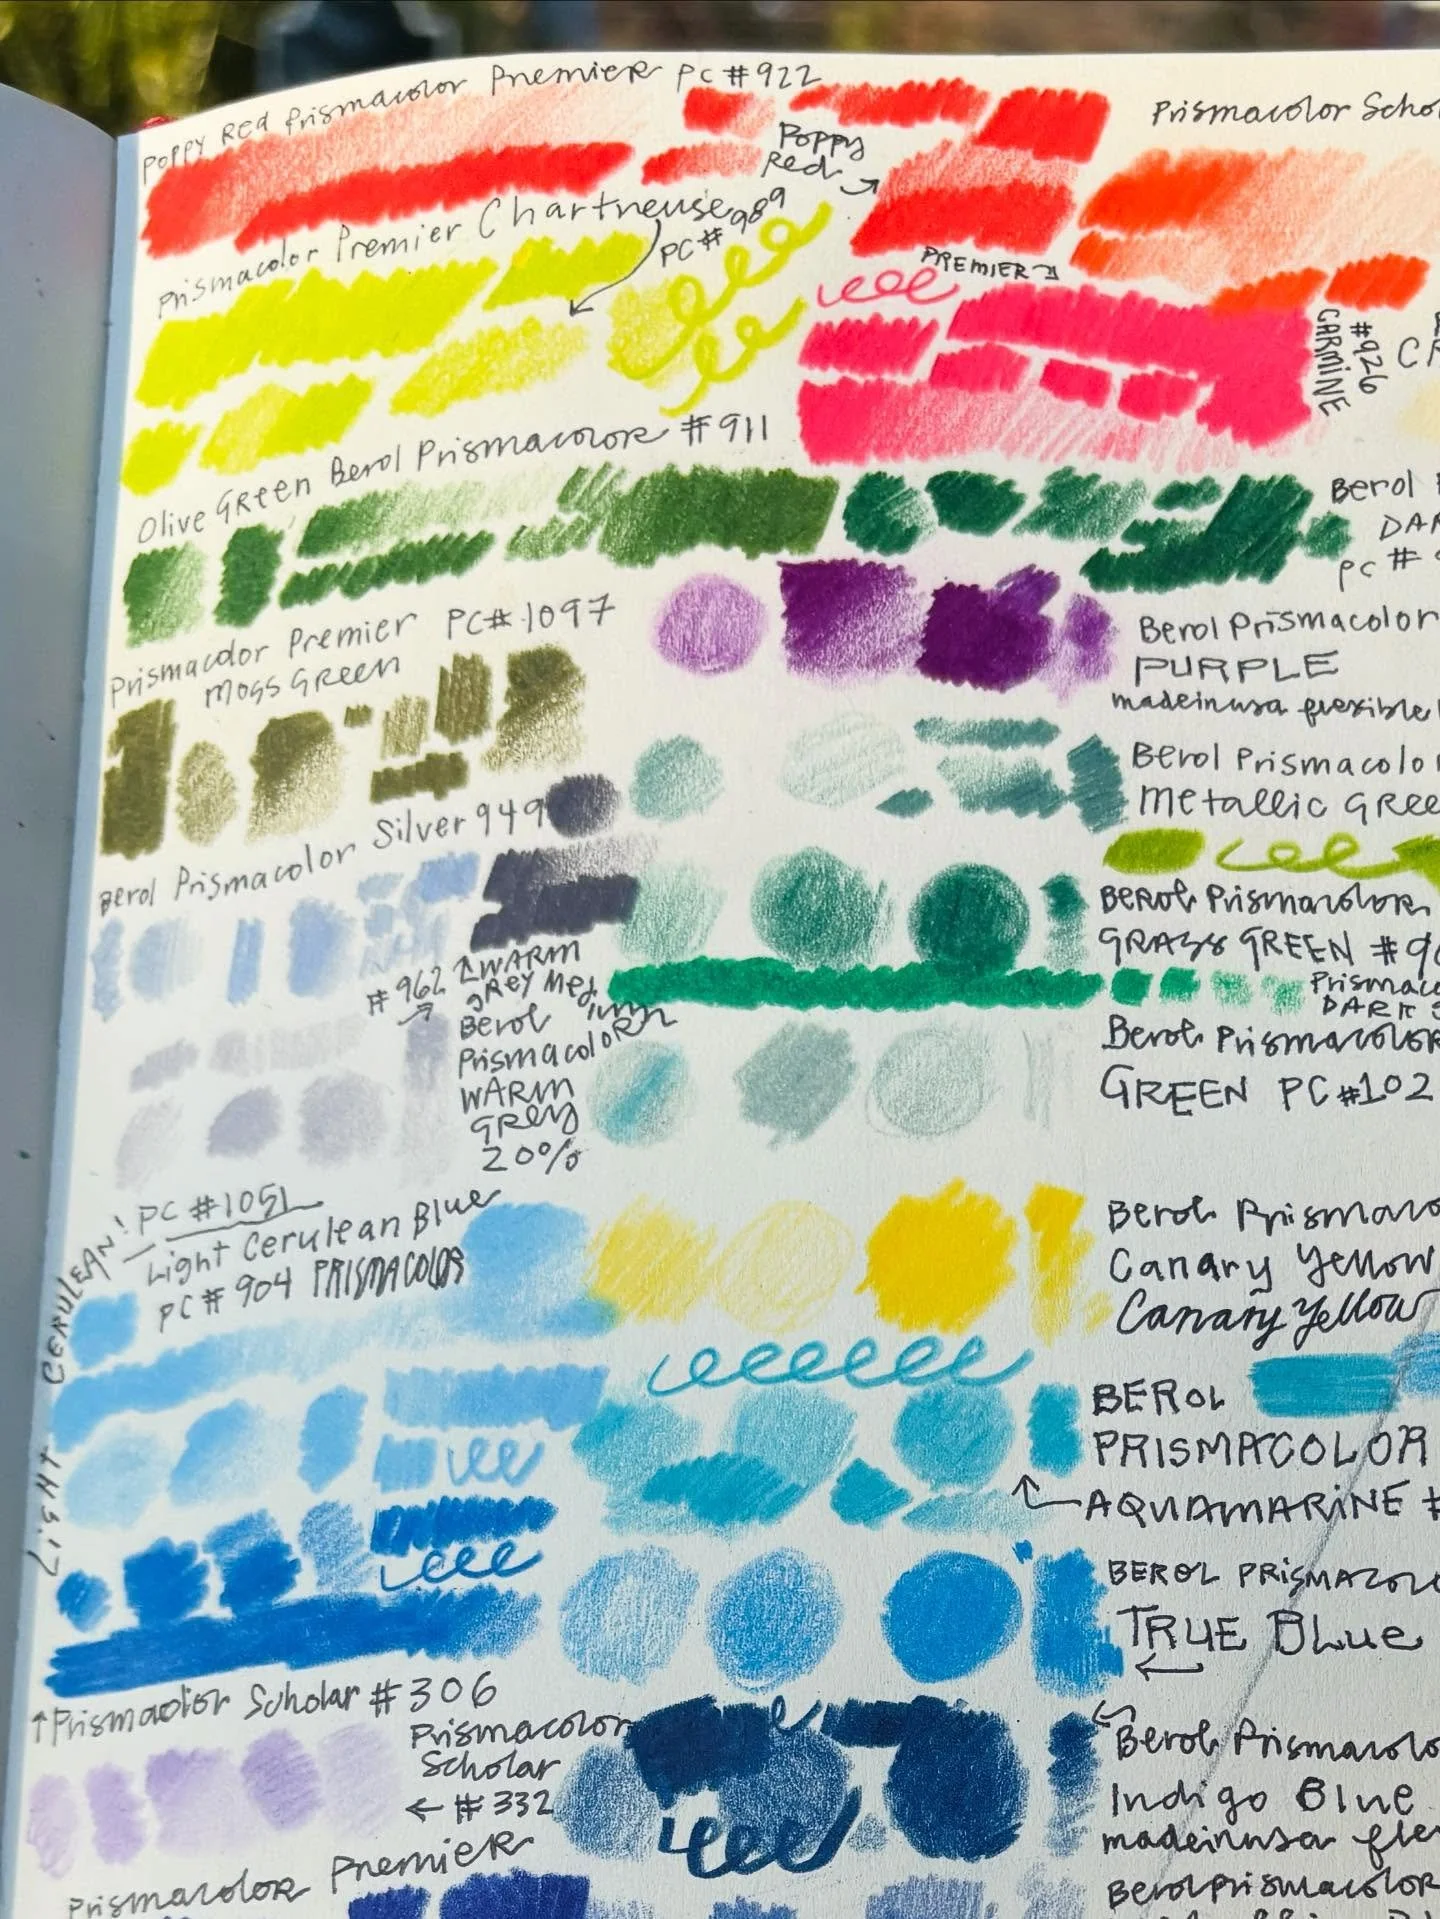 Poppy Red Prismacolor Premier PC #922
Poppy
Red
Prismacolor Scho
Prismacolor Premier Chartreuse
PC# 989
PREMIER
CARMINE
#926
Olive GREEN Berol Prismacolor #911
Berol
DAR
PC #
Prismacolor Premier PC# 1097
Moss GReen
Berol Prismacolor
PURPLE
madeinusa flexible
Berol Prismacolor Silver 949
Berol Prismacolo
Metallic GRee
#962
WARM
gRey Med
ium
Berol
PrismacoloR
WARM
GRey
20%
BEROL Prismacolor
GRASS GREEN #90
Prismac
DARK
Berol Prismacolor
GREEN PC #102
CERULEAN!
PC #1051
Light Cerulean Blue
PC# 904 PRISMACOLOR
Berol Prismaco
Canary Yellow
Canary Yellow
BEROL
PRISMACOLOR
AQUAMARINE #
BEROL PRISMACOLO
TRUE BLue
Prismacolor Scholar #306
Prismacolor
Scholar
#332
Berol Prismacolo
Indigo Blue
madeinusa fle
Prismacolor Premier
Berol Prismacolor